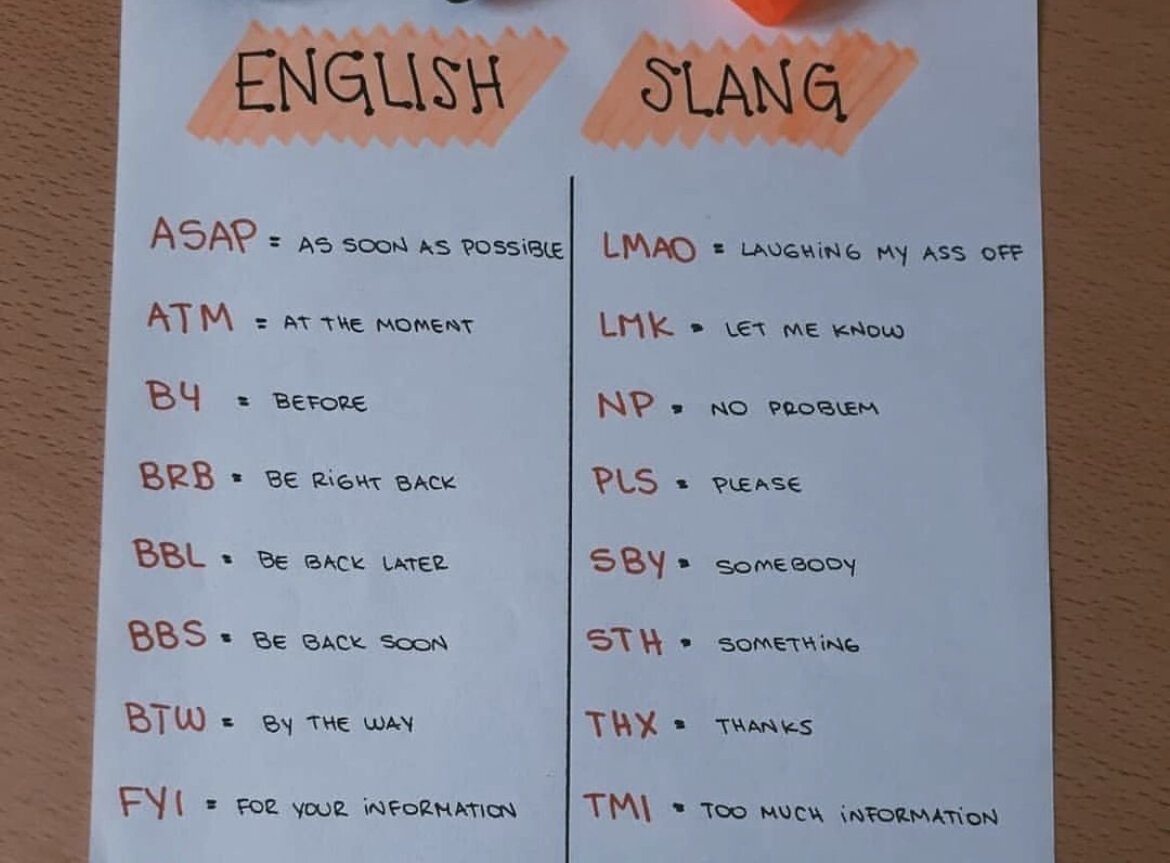 ENGLISH SLANG
ASAP = AS SOON AS POSSIBLE
ATM = AT THE MOMENT
B4 = BEFORE
BRB = BE RIGHT BACK
BBL = BE BACK LATER
BBS = BE BACK SOON
BTW = BY THE WAY
FYI = FOR YOUR INFORMATION
LMAO = LAUGHING MY ASS OFF
LMK = LET ME KNOW
NP = NO PROBLEM
PLS = PLEASE
SBY = SOMEBODY
STH = SOMETHING
THX = THANKS
TMI = TOO MUCH INFORMATION